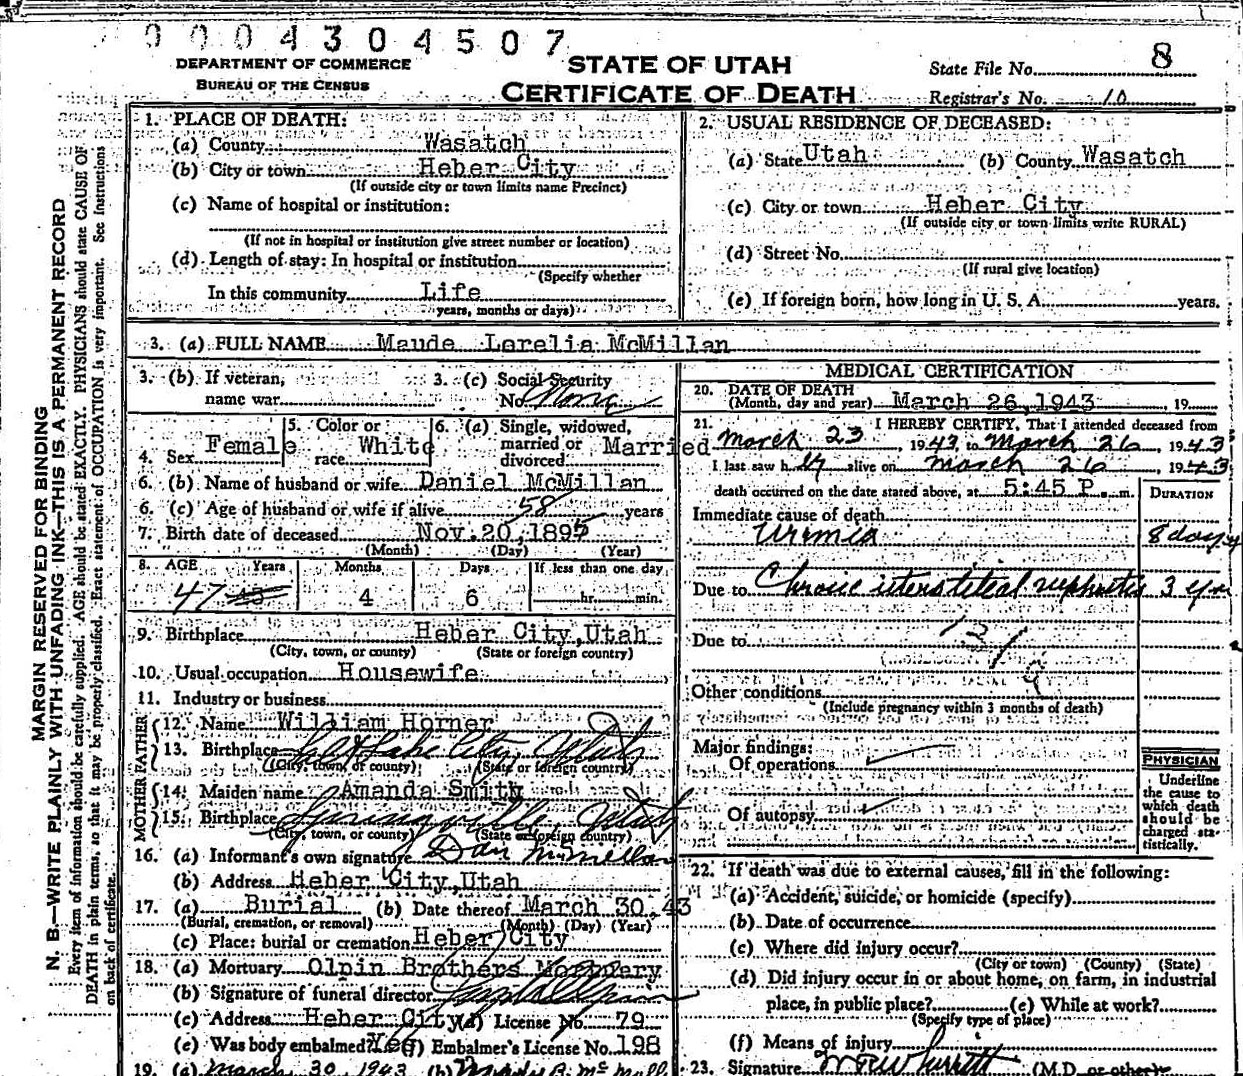 0004304507
DEPARTMENT OF COMMERCE
BUREAU OF THE CENSUS
STATE OF UTAH
CERTIFICATE OF DEATH
State File No. 8
Registrar's No. 10
MARGIN RESERVED FOR BINDING
N. B.—WRITE PLAINLY WITH UNFADING INK—THIS IS A PERMANENT RECORD
Every item of information should be carefully supplied. AGE should be stated EXACTLY. PHYSICIANS should state CAUSE OF
DEATH in plain terms, so that it may be properly classified. Exact statement of OCCUPATION is very important. See Instructions
on back of certificate.
1. PLACE OF DEATH:
(a) County Wasatch
(b) City or town Heber City
(If outside city or town limits name Precinct)
(c) Name of hospital or institution:
(If not in hospital or institution give street number or location)
(d) Length of stay: In hospital or institution
(Specify whether
In this community Life
years, months or days)
2. USUAL RESIDENCE OF DECEASED:
(a) State Utah (b) County Wasatch
(c) City or town Heber City
(If outside city or town limits write RURAL)
(d) Street No.
(If rural give location)
(e) If foreign born, how long in U. S. A. years.
3. (a) FULL NAME Maude Lorelia McMillan
3. (b) If veteran,
name war
3. (c) Social Security
No. None
4. Sex Female
5. Color or
race White
6. (a) Single, widowed,
married or
divorced Married
6. (b) Name of husband or wife Daniel McMillan
6. (c) Age of husband or wife if alive 58 years
7. Birth date of deceased Nov. 20, 1895
(Month) (Day) (Year)
8. AGE Years Months Days If less than one day
47 45 4 6 hr. min.
9. Birthplace Heber City, Utah
(City, town, or county) (State or foreign country)
10. Usual occupation Housewife
11. Industry or business
FATHER
12. Name William Horner
13. Birthplace Salt Lake City Utah
(City, town, or county) (State or foreign country)
MOTHER
14. Maiden name Amanda Smith
15. Birthplace Springville Utah
(City, town, or county) (State or foreign country)
16. (a) Informant's own signature Dan McMillan
(b) Address Heber City, Utah
17. (a) Burial (b) Date thereof March 30, 43
(Burial, cremation, or removal) (Month) (Day) (Year)
(c) Place: burial or cremation Heber City
18. (a) Mortuary Olpin Brothers Mortuary
(b) Signature of funeral director
(c) Address Heber City (d) License No. 79
(e) Was body embalmed? Yes (f) Embalmer's License No. 198
19. (a) March 30, 1943 (b)
MEDICAL CERTIFICATION
20. DATE OF DEATH
(Month, day and year) March 26, 1943, 19
21. I HEREBY CERTIFY, That I attended deceased from
March 23, 1943, to March 26, 1943
I last saw her alive on March 26, 1943
death occurred on the date stated above, at 5:45 P. m.
DURATION
Immediate cause of death
Uremia 8 days
Due to Chronic interstitial nephritis 3 yrs
Due to
Other conditions
(Include pregnancy within 3 months of death)
Major findings:
Of operations
Of autopsy
PHYSICIAN
Underline
the cause to
which death
should be
charged sta-
tistically.
22. If death was due to external causes, fill in the following:
(a) Accident, suicide, or homicide (specify)
(b) Date of occurrence
(c) Where did injury occur?
(City or town) (County) (State)
(d) Did injury occur in or about home, on farm, in industrial
place, in public place? (e) While at work?
(Specify type of place)
(f) Means of injury
23. Signature (M.D. or other)